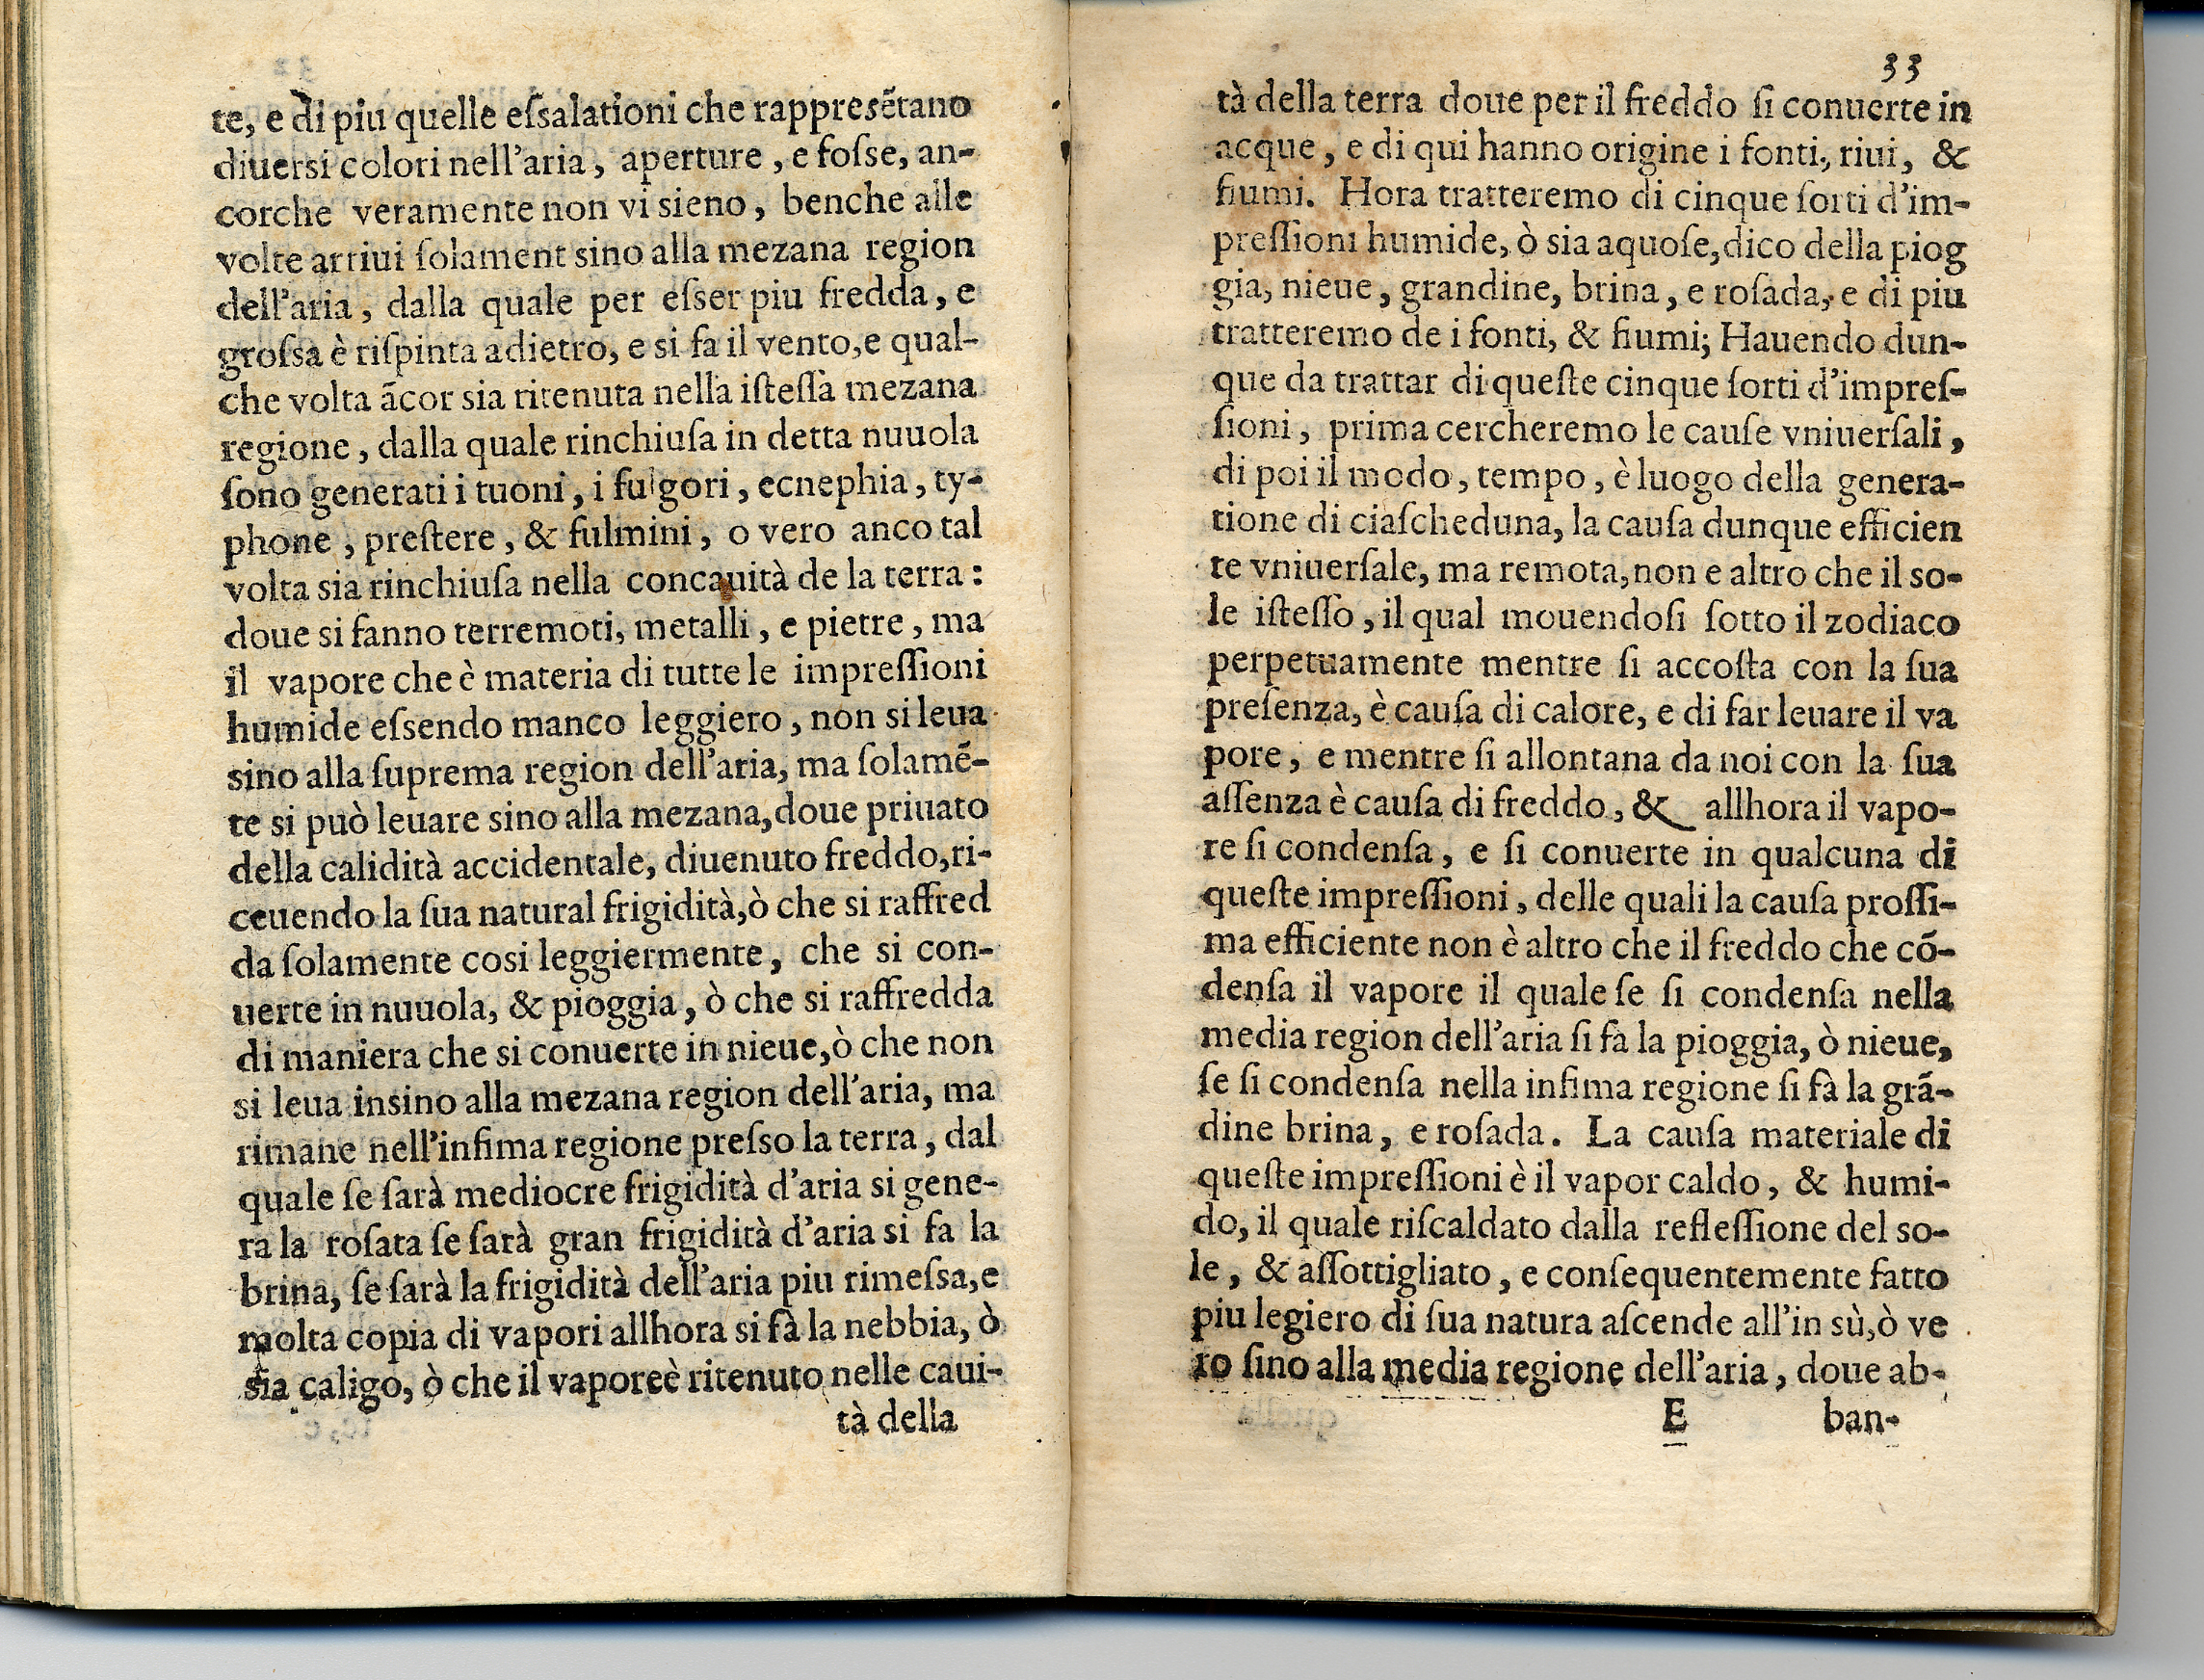 te, e di piu quelle eſsalationi che rappresẽtano
diuersi colori nell'aria, aperture, e foſse, an-
corche veramente non vi sieno, benche alle
volte arriui ſolament sino alla mezana region
dell'aria, dalla quale per eſser piu fredda, e
groſsa è riſpinta adietro, e si fa il vento, e qual-
che volta ãcor sia ritenuta nella iſteſſa mezana
regione, dalla quale rinchiuſa in detta nuuola
ſono generati i tuoni, i fulgori, ecnephia, ty-
phone, preſtere, & fulmini, o vero anco tal
volta sia rinchiuſa nella concauità de la terra:
doue si fanno terremoti, metalli, e pietre, ma
il vapore che è materia di tutte le impreſſioni
humide eſsendo manco leggiero, non si leua
sino alla ſuprema region dell'aria, ma ſolamẽ-
te si può leuare sino alla mezana, doue priuato
della calidità accidentale, diuenuto freddo, ri-
ceuendo la ſua natural frigidità, ò che si raffred
da ſolamente cosi leggiermente, che si con-
uerte in nuuola, & pioggia, ò che si raffredda
di maniera che si conuerte in nieue, ò che non
si leua insino alla mezana region dell'aria, ma
rimane nell'infima regione preſso la terra, dal
quale ſe ſarà mediocre frigidità d'aria si gene-
ra la roſata ſe ſarà gran frigidità d'aria si fa la
brina, ſe ſarà la frigidità dell'aria piu rimeſsa, e
molta copia di vapori allhora si fà la nebbia, ò
sia caligo, ò che il vaporeè ritenuto nelle caui-
tà della
33
tà della terra doue per il freddo ſi conuerte in
acque, e di qui hanno origine i fonti, riui, &
fiumi. Hora tratteremo di cinque ſorti d'im-
preſſioni humide, ò sia aquoſe, dico della piog
gia, nieue, grandine, brina, e roſada, e di piu
tratteremo de i fonti, & fiumi; Hauendo dun-
que da trattar di queſte cinque ſorti d'impreſ-
ſioni, prima cercheremo le cauſe vniuerſali,
di poi il modo, tempo, è luogo della genera-
tione di ciaſcheduna, la cauſa dunque efficien
te vniuerſale, ma remota, non e altro che il so-
le iſteſſo, il qual mouendoſi ſotto il zodiaco
perpetuamente mentre ſi accoſta con la ſua
preſenza, è cauſa di calore, e di far leuare il va
pore, e mentre ſi allontana da noi con la ſua
aſſenza è cauſa di freddo, & allhora il vapo-
re ſi condenſa, e ſi conuerte in qualcuna di
queſte impreſſioni, delle quali la cauſa proſſi-
ma efficiente non è altro che il freddo che cõ-
denſa il vapore il quale ſe ſi condenſa nella
media region dell'aria ſi fa la pioggia, ò nieue,
ſe ſi condenſa nella infima regione ſi fà la grã-
dine brina, e roſada. La cauſa materiale di
queſte impreſſioni è il vapor caldo, & humi-
do, il quale riſcaldato dalla refleſſione del so-
le, & aſſottigliato, e conſequentemente fatto
piu legiero di ſua natura aſcende all'in sù, ò ve
ro ſino alla media regione dell'aria, doue ab-
E ban-